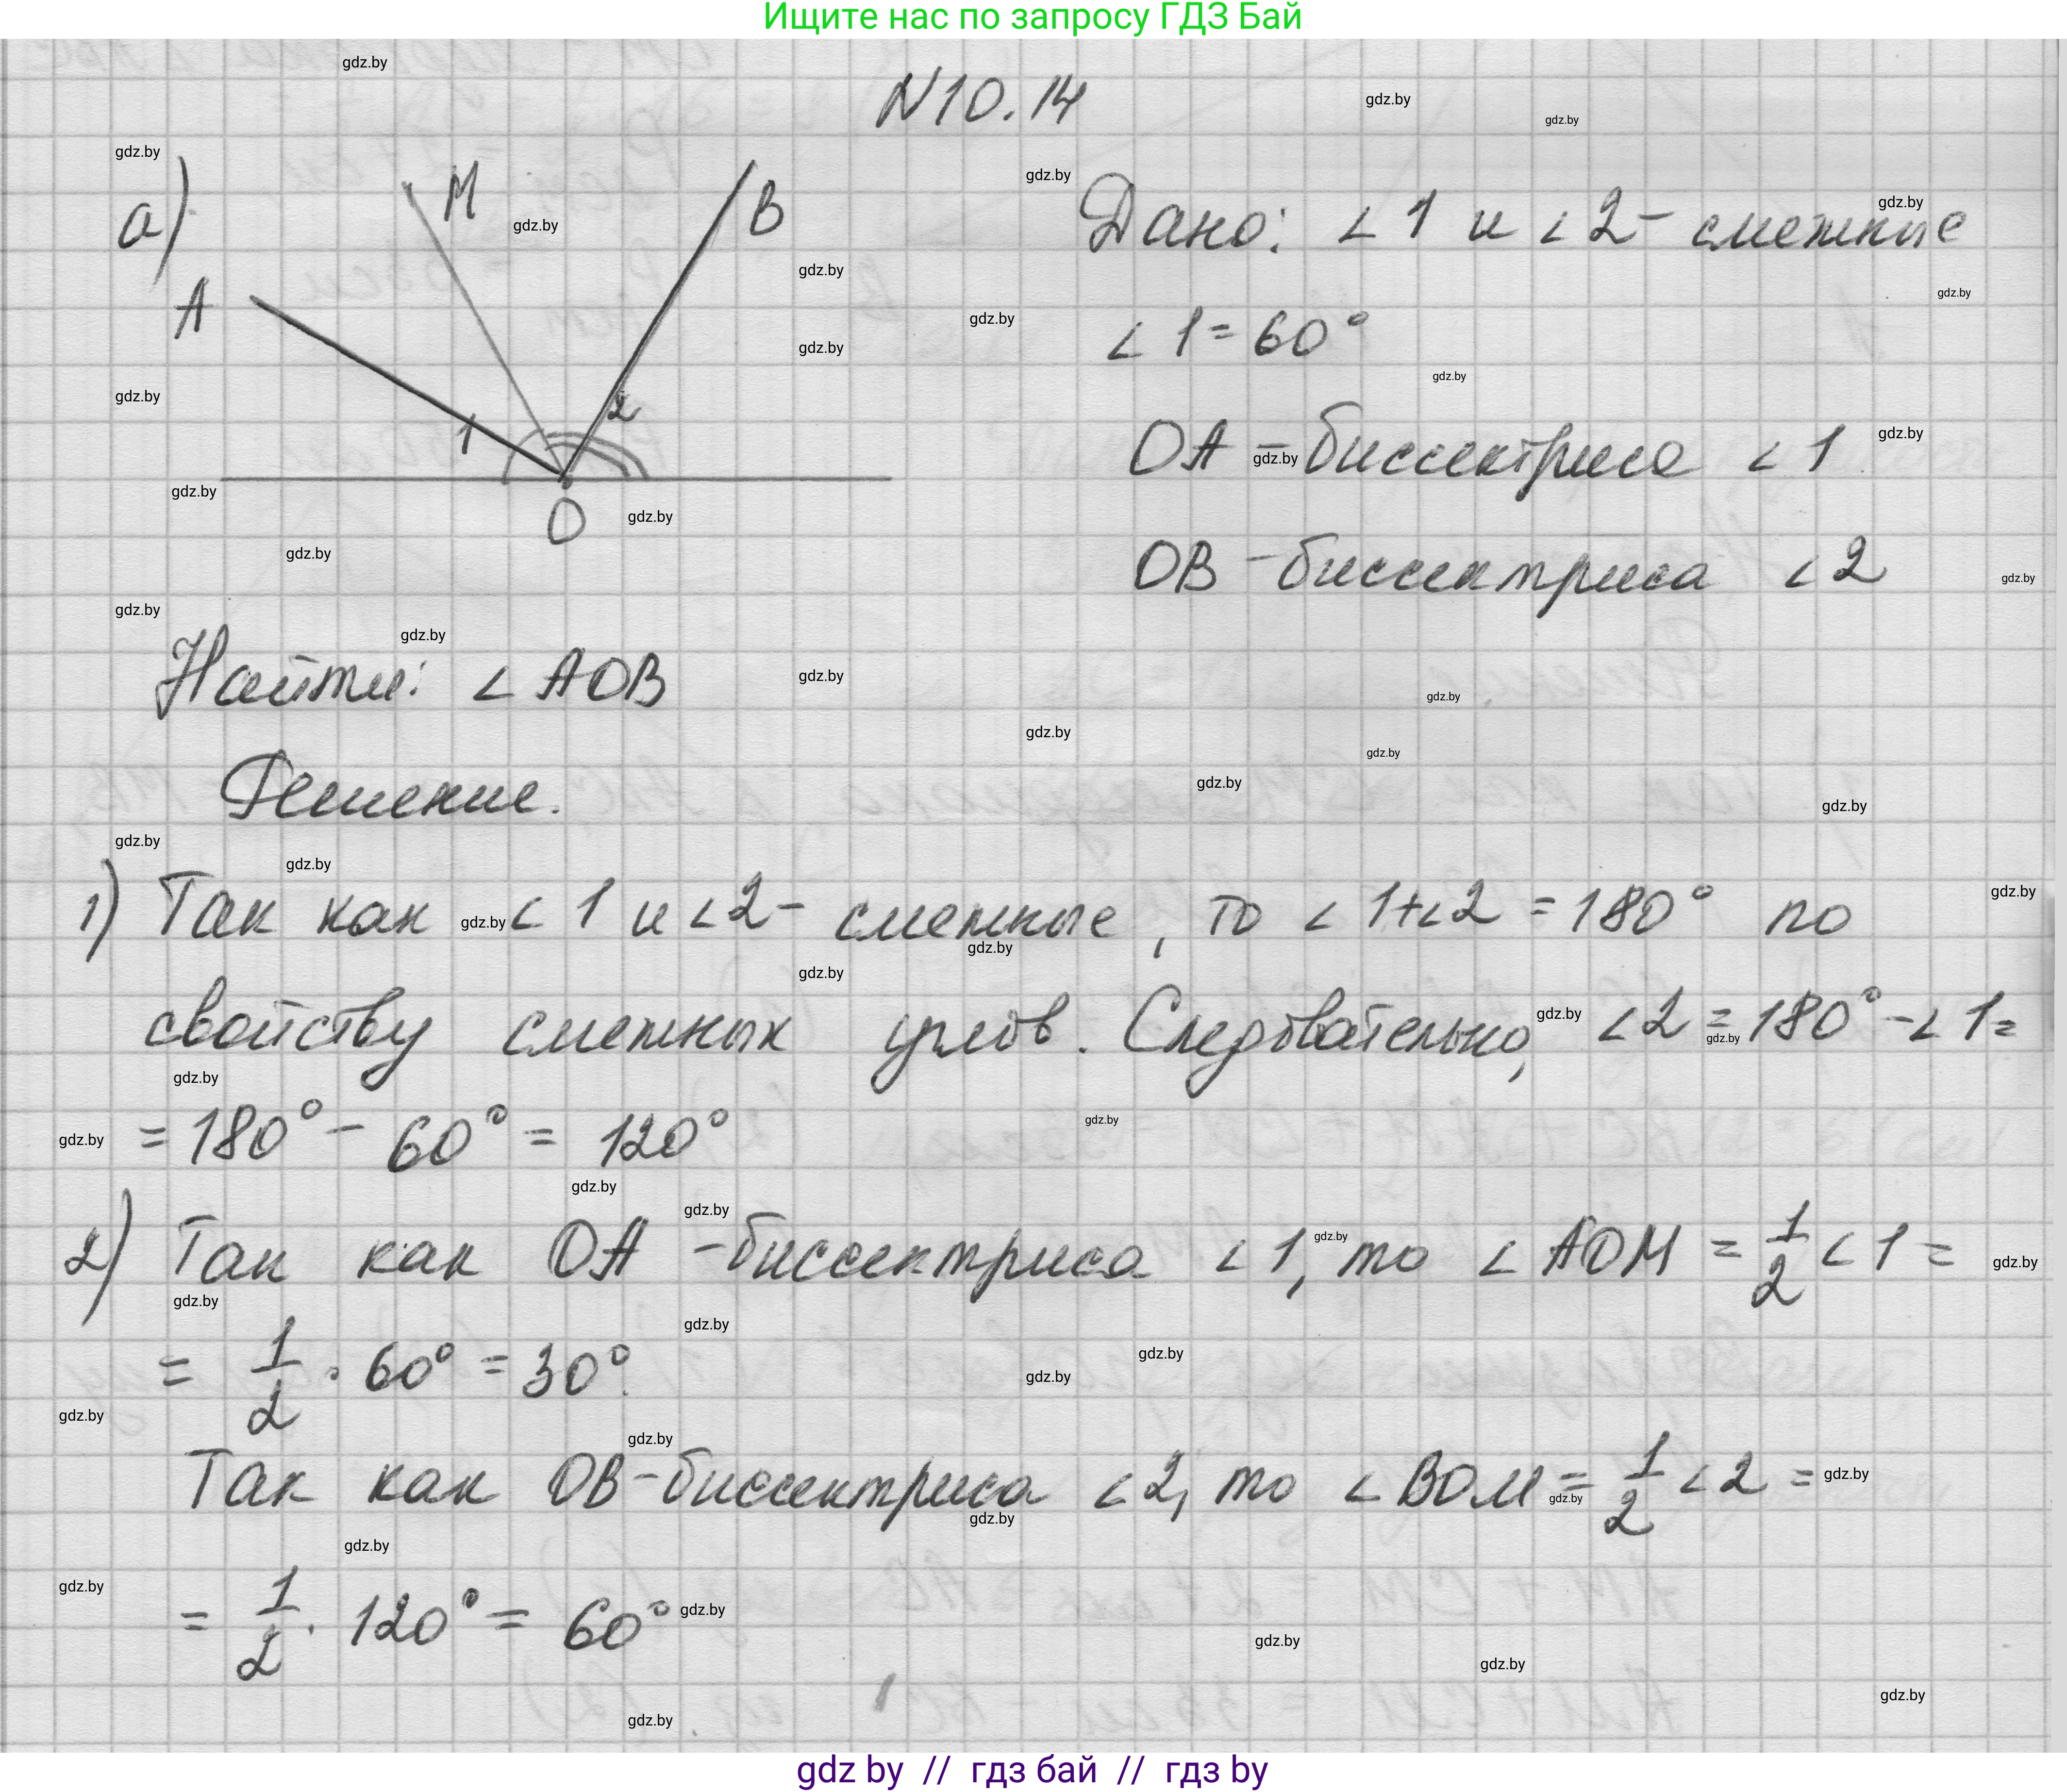 Ищите нас по запросу ГДЗ Бай
N10.14
а)
M
B
A
1
2
O
Дано: ∠1 и ∠2 - смежные
∠1 = 60°
OA - биссектриса ∠1
OB - биссектриса ∠2
Найти: ∠AOB
Решение.
1) Так как ∠1 и ∠2 - смежные, то ∠1+∠2 = 180° по
свойству смежных углов. Следовательно, ∠2 = 180° - ∠1 =
= 180° - 60° = 120°
2) Так как OA - биссектриса ∠1, то ∠AOM = 1/2 ∠1 =
= 1/2 · 60° = 30°.
Так как OB - биссектриса ∠2, то ∠BOM = 1/2 ∠2 =
= 1/2 · 120° = 60°
gdz by // гдз бай // гдз by